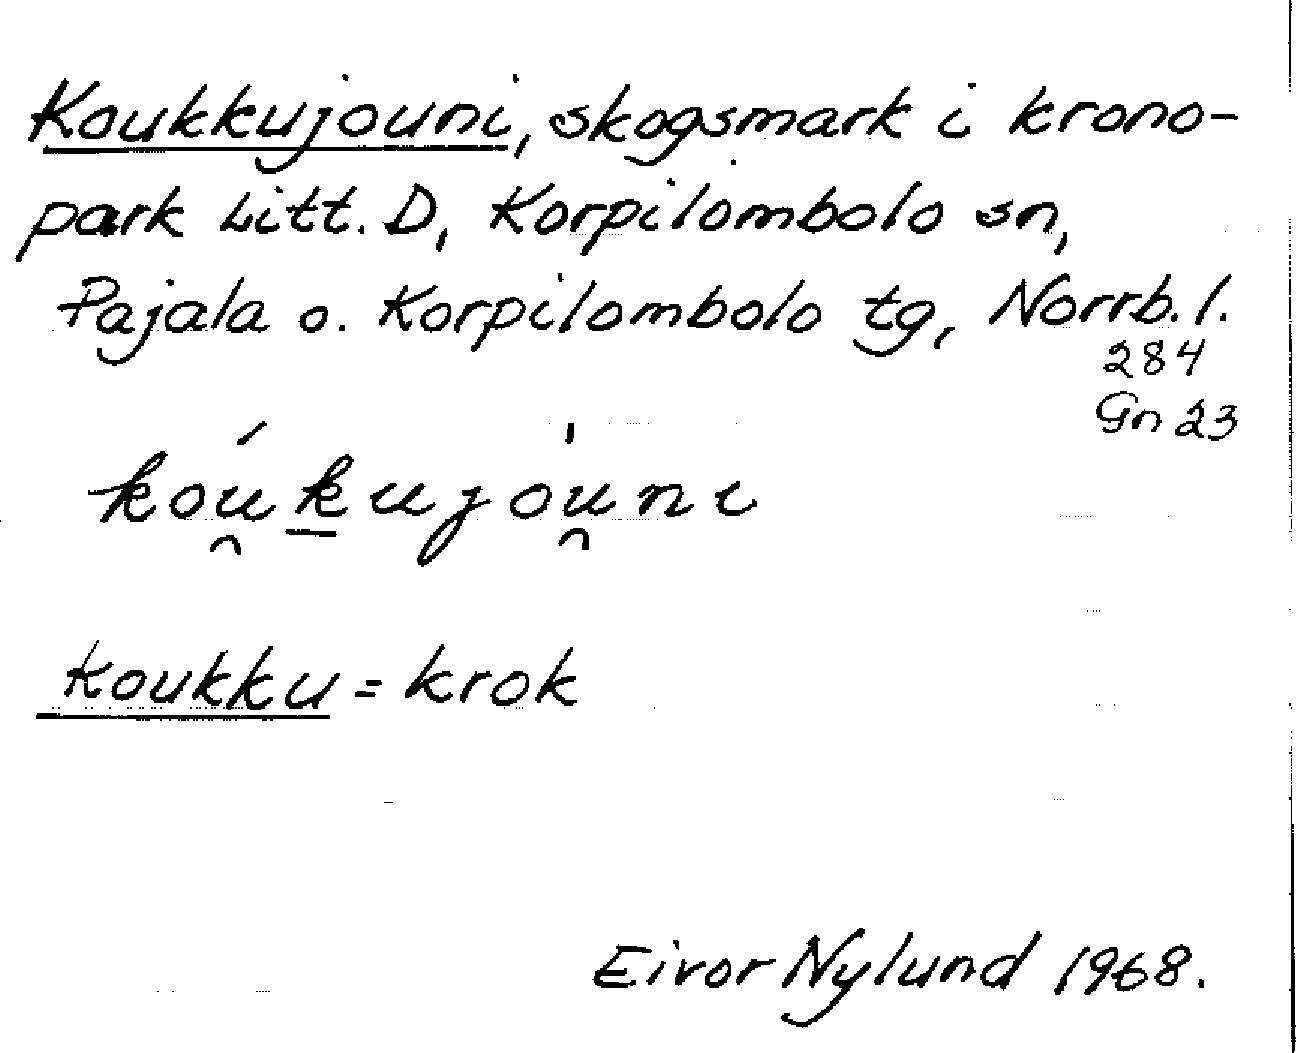 Koukkujouni, skogsmark i krono-
park Litt. D, Korpilombolo sn,
Pajala o. Korpilombolo tg, Norrb. l.
284
Gn 23
kóu̯k̲ujo̍u̯nɩ
koukku = krok
Eivor Nylund 1968.